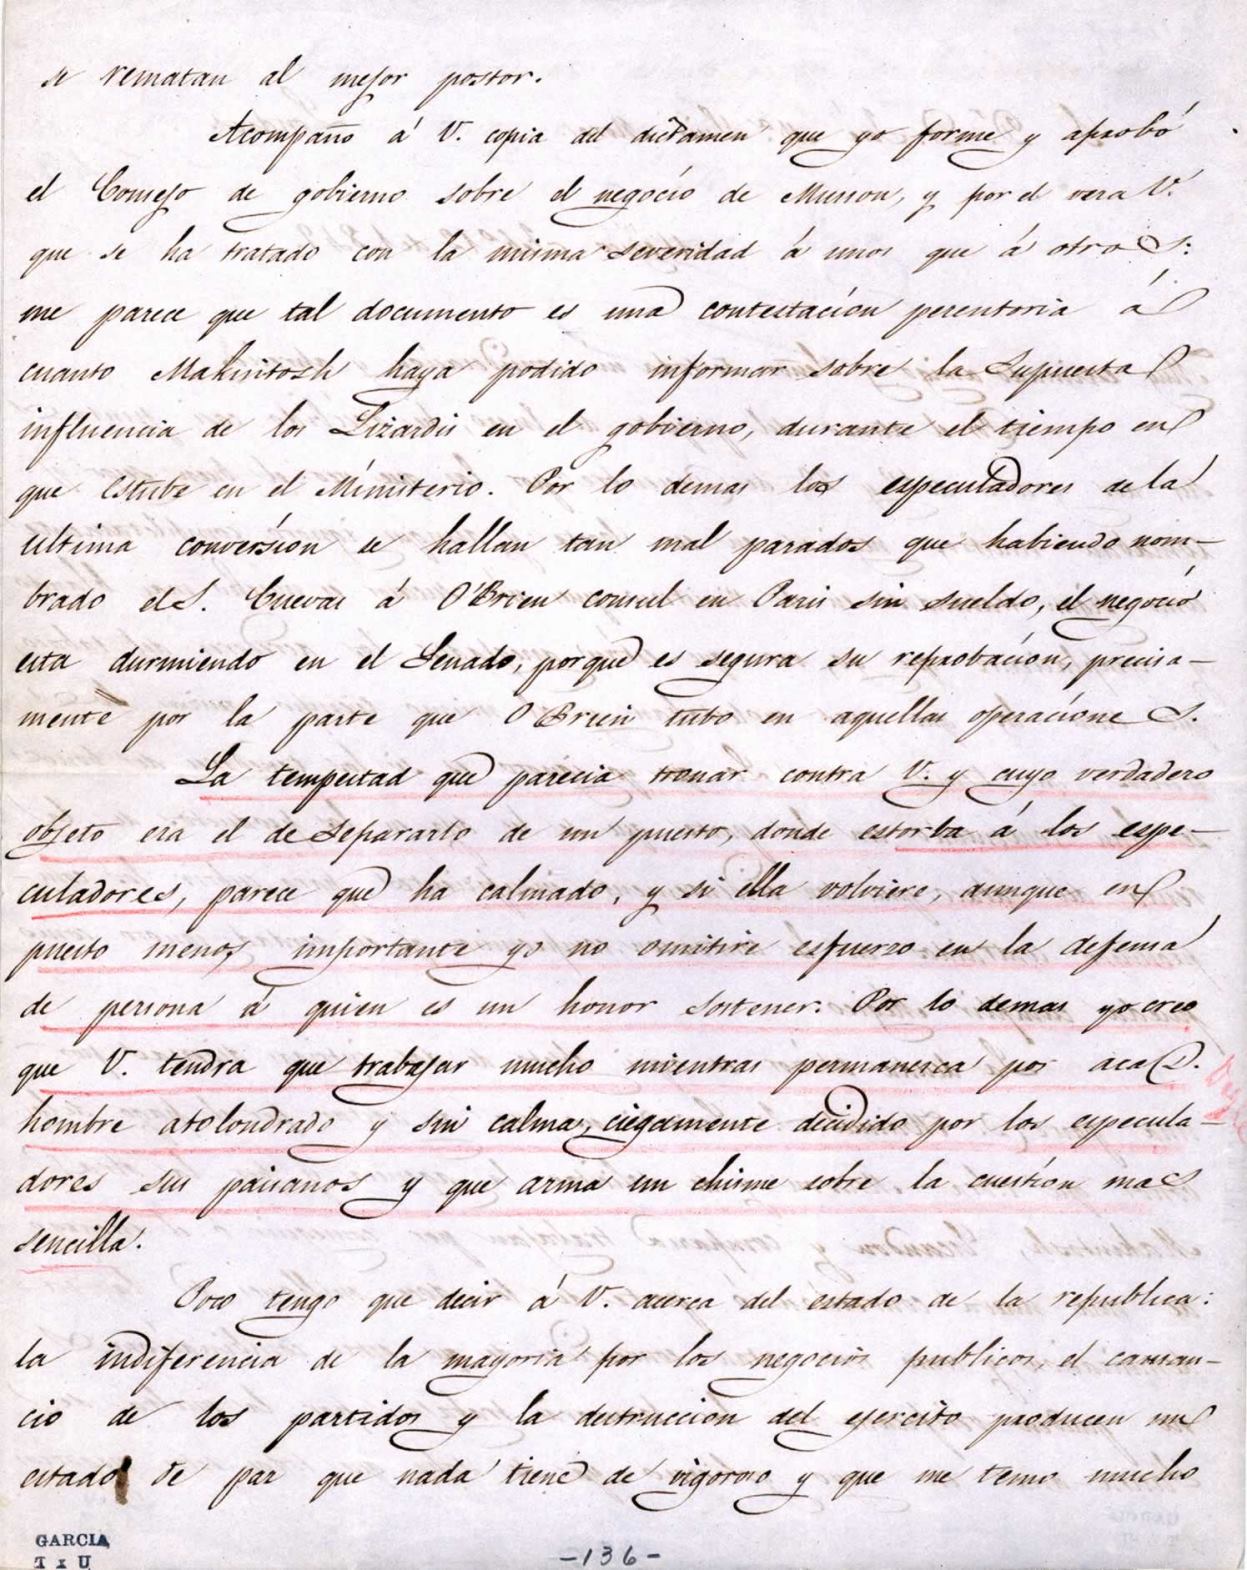 se rematan al mejor postor.
Acompaño á V. copia del dictamen que yo forme y aprobó
el Consejo de gobierno sobre el negocio de Musson, y por el vera V.
que se ha tratado con la misma severidad á unos que á otros:
me parece que tal documento es una contestación perentoria á
cuanto Makintosh haya podido informar sobre la Supuesta
influencia de los Lizardis en el gobierno, durante el tiempo en
que estube en el Ministerio. Por lo demas los especuladores de la
ultima conversión se hallan tan mal parados que habiendo nom-
brado el S. Cuevas á O'Brien consul en Paris sin sueldo, el negocio
esta durmiendo en el Senado, porque es segura su reprobación, precisa-
mente por la parte que O'Brien tubo en aquellas operaciones.
La tempestad que parecia tronar contra V. y cuyo verdadero
objeto era el de Separarlo de un puesto, donde estorba á los espe-
culadores, parece que ha calmado, y si ella volviere, aunque en
puesto menos importante yo no omitire esfuerzo en la defensa
de persona á quien es un honor sostener. Por lo demas yo creo
que V. tendra que trabajar mucho mientras permanesca por aca D.
hombre atolondrado y sin calma, ciegamente decidido por los especula-
dores sus paisanos y que arma un chisme sobre la cuestión mas
sencilla.
Poco tengo que decir á V. acerca del estado de la republica:
la indiferencia de la mayoria por los negocios publicos, el cansan-
cio de los partidos y la destruccion del ejercito producen un
estado de paz que nada tiene de vigoroso y que me temo mucho
GARCIA
-136-